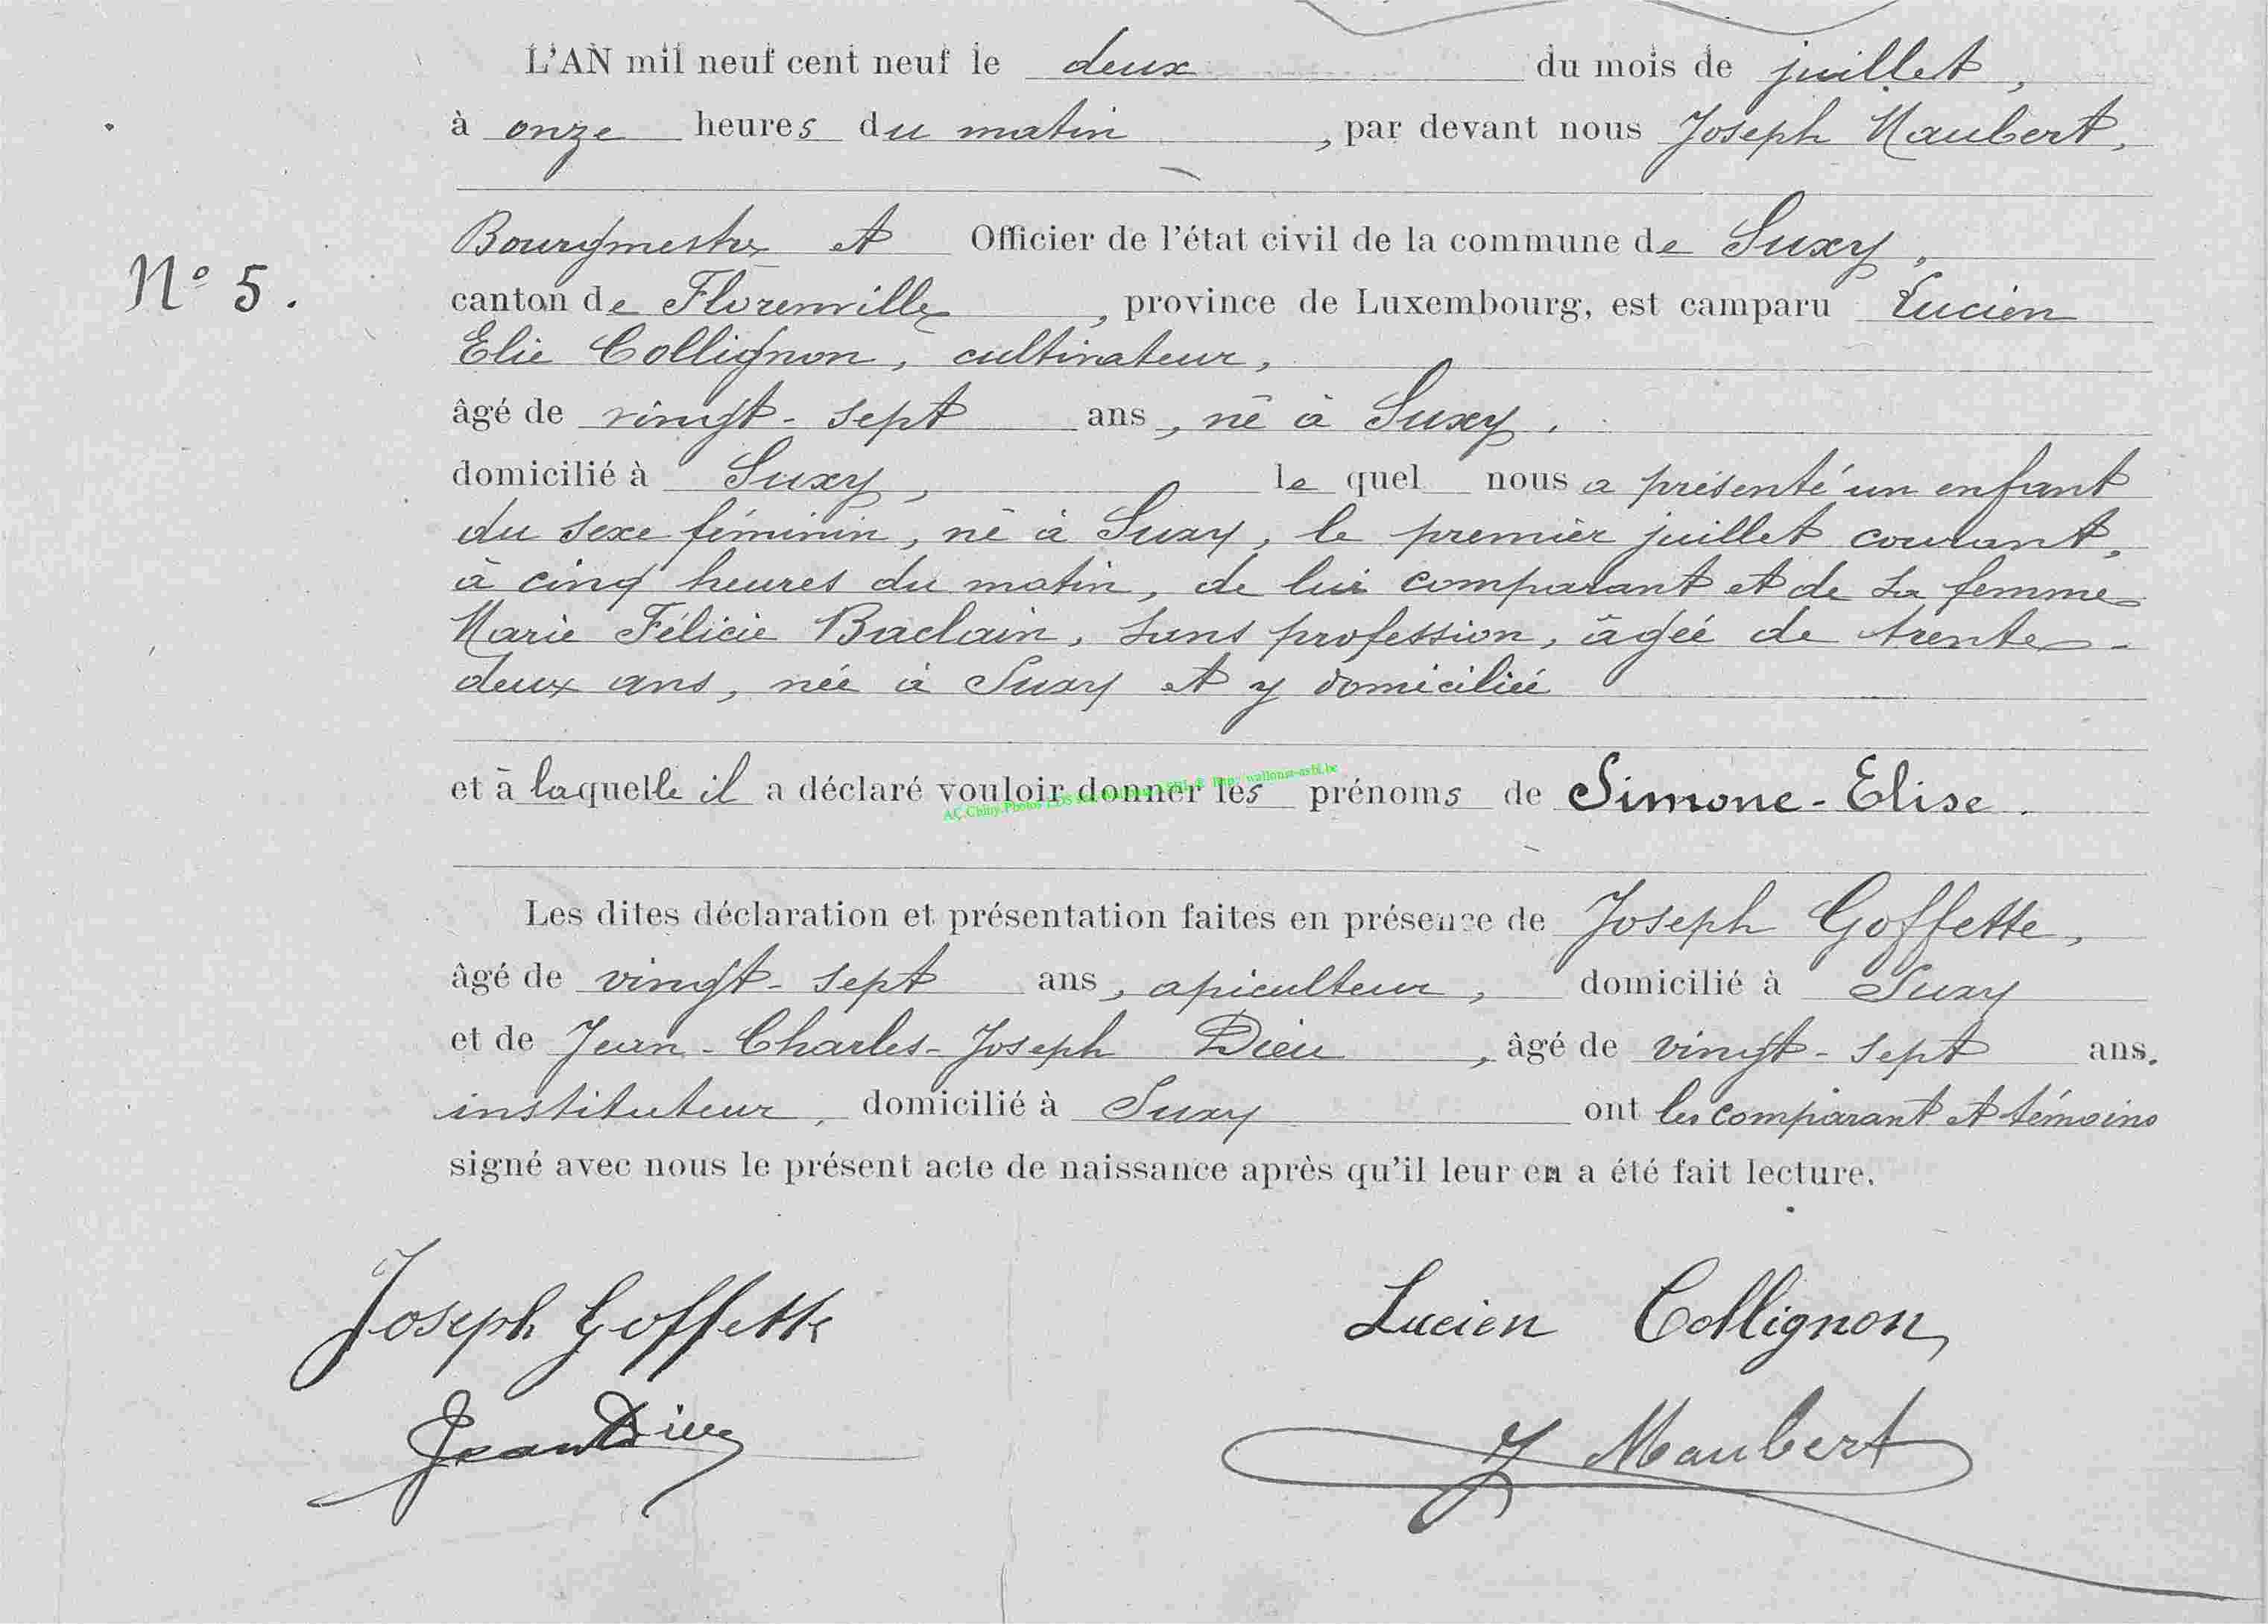 L'AN mil neuf cent neuf le deux du mois de juillet,
à onze heures du matin, par devant nous Joseph Maubert,
Bourgmestre et Officier de l'état civil de la commune de Suxy,
N° 5.
canton de Florenville, province de Luxembourg, est camparu Lucien
Elie Collignon, cultivateur,
âgé de vingt-sept ans, né à Suxy,
domicilié à Suxy, le quel nous a présenté un enfant
du sexe féminin, né à Suxy, le premier juillet courant,
à cinq heures du matin, de lui comparant et de sa femme
Marie Félicie Baclain, sans profession, âgée de trente-
deux ans, née à Suxy et y domiciliée
et à laquelle il a déclaré vouloir donner les prénoms de Simone-Elise.
Les dites déclaration et présentation faites en présence de Joseph Goffette,
âgé de vingt-sept ans, apiculteur, domicilié à Suxy
et de Jean-Charles-Joseph Dieu, âgé de vingt-sept ans.
instituteur, domicilié à Suxy ont les comparant et témoins
signé avec nous le présent acte de naissance après qu'il leur en a été fait lecture.
Joseph Goffette
Lucien Collignon
Jean Dieu
J Maubert